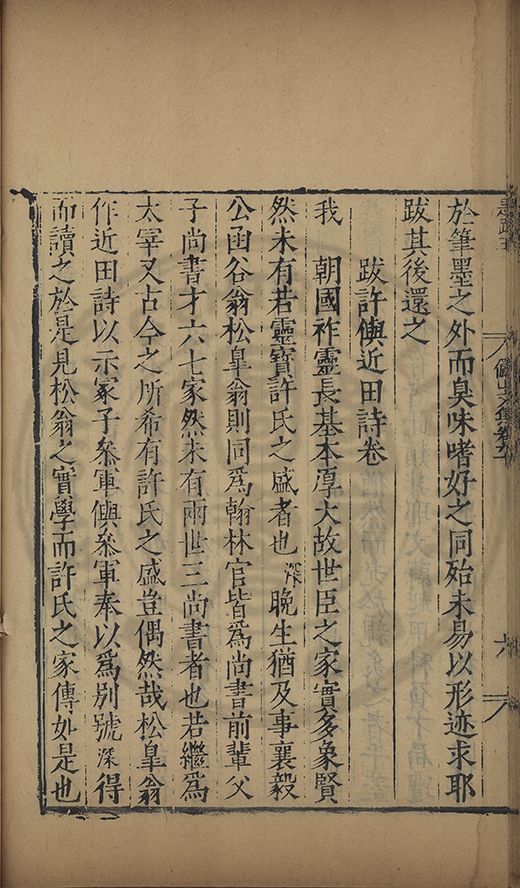 於筆墨之外而臭味嗜好之同殆未易以形迹求耶
跋其後還之
跋許㒜近田詩卷
我 朝國祚靈長基本淳大故世臣之家實多象賢
然未有若靈寶許氏之盛者也深晚生猶及事襄毅
公函谷翁松臯翁則同爲翰林官皆爲尚書前輩父
子尚書才六七家然未有兩世三尚書者也若繼爲
太宰又古今之所希有許氏之盛豈偶然哉松臯翁
作近田詩以示冢子叅軍㒜叅軍奉以爲別號深得
而讀之於是見松翁之實學而許氏之家傳如是也
儼山文集卷九
六